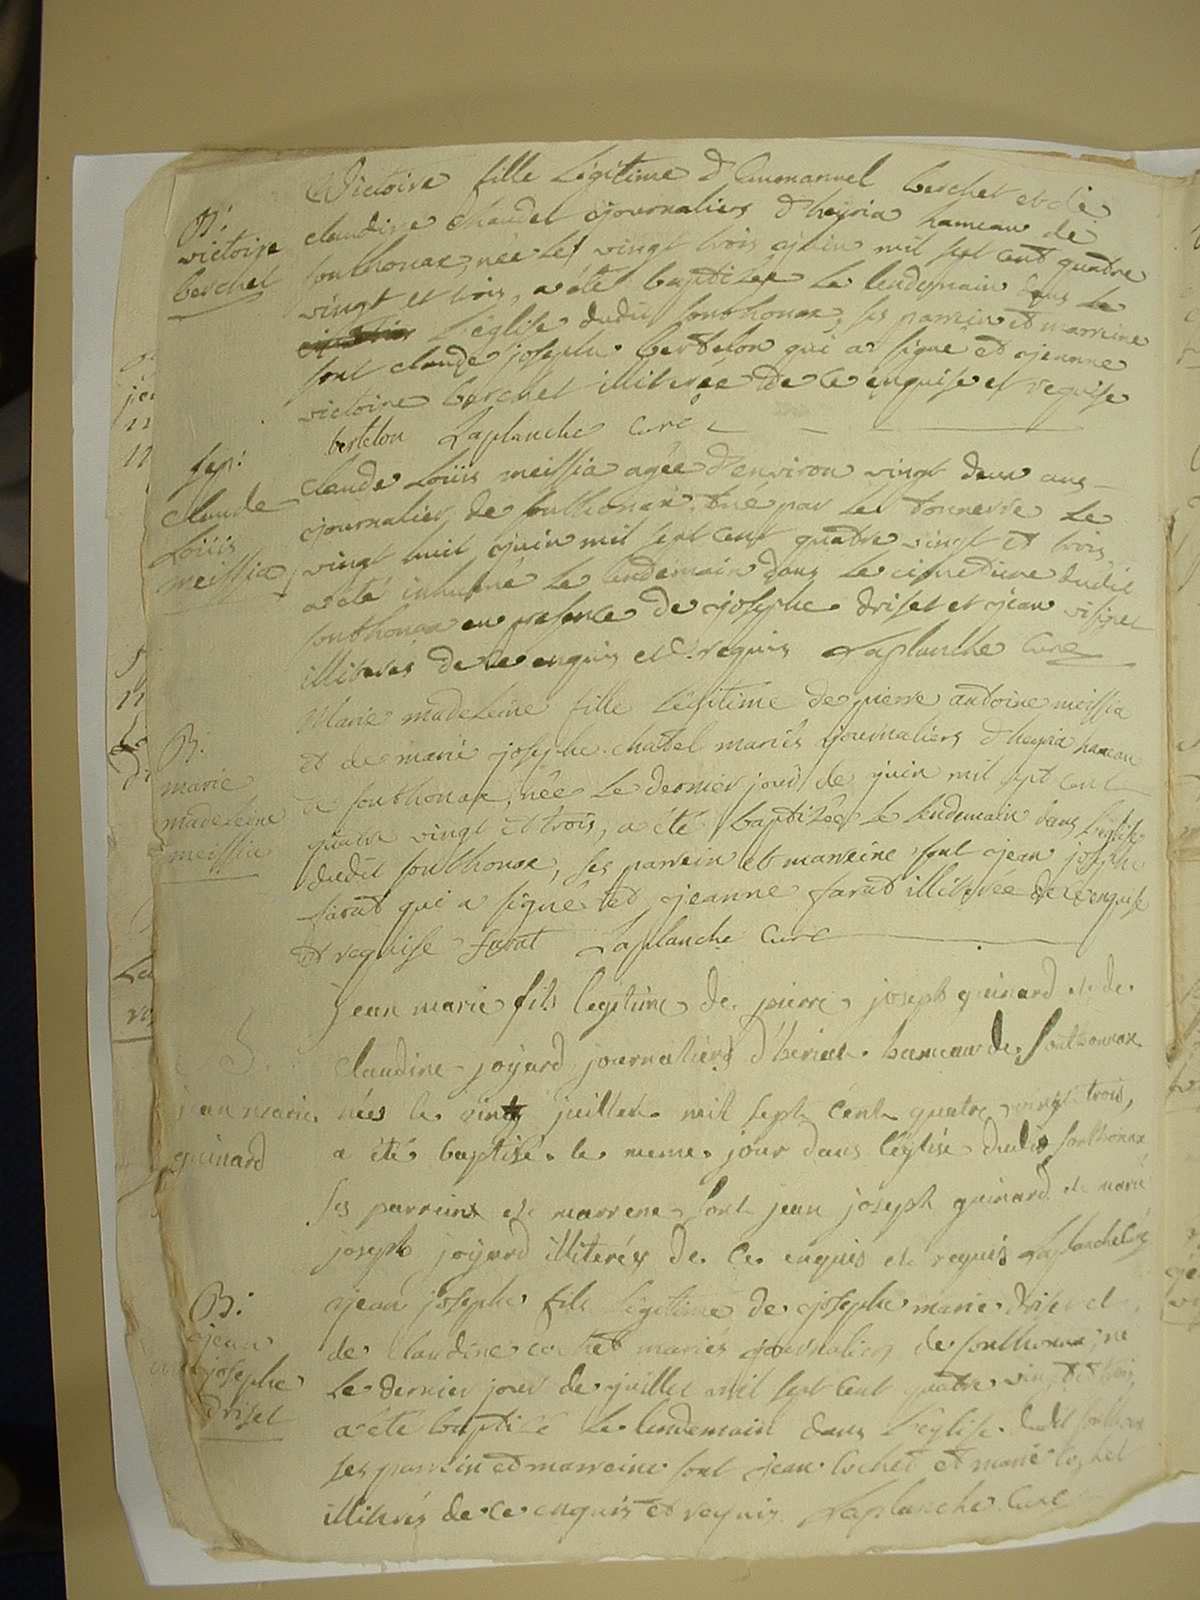 Victoire fille légitime d'Emmanuel berchet et de
B:
victoire
berchet
claudine chaudet journaliers d'heyria hameau de
southonax, née le vingt trois juin mil sept cent quatre
vingt et trois, a été baptisée le lendemain dans le
l'église dudit southonax, ses parrein et marreine
sont claude josephe bertelon qui a signé et jeanne
victoire berchet illiterée de ce enquise et requise
bertelon Laplanche curé
Sep:
claude
Loüis
meissia
claude Loüis meissia agée d'environ vingt deux ans
journalier de southonax, tué par le tonnerre le
vingt huit juin mil sept cent quatre vingt et trois
a été inhumé le lendemain dans le cimetiere dudit
southonax en presence de josephe driset et jean
illiterés de ce enquis et requis Laplanche curé
B:
marie
madeleine
meissia
Marie madeleine fille légitime de pierre antoine meissia
et de marie josephe chatel mariés journaliers d'heyria hameau
de southonax, née le dernier jour de juin mil sept cent
quatre vingt et trois, a été baptisée le lendemain dans l'église
dudit southonax, ses parrein et marreine sont jean josephe
farat qui a signé et jeanne farat illiterée de ce enquise
et requise farat Laplanche curé
B.
jean marie
guinard
Jean marie fils legitime de pierre joseph guinard et de
claudine joyard journaliers d'heriat hameau de Southonnax
nées le vingt juillet mil sept cent quatre vingt trois,
a été baptisé le meme jour dans l'église dudit southonnax
ses parreins et marrene sont jean joseph guinard et marie
joseph joyard illiteréz de ce enquis et requis Laplanche curé
B:
jean
josephe
driset
jean josephe fils légitime de josephe marie driset et
de claudine cochet mariés journaliers de southonax, né
le dernier jour de juillet mil sept cent quatre vingt et trois
a été baptisé le lendemain dans l'église dudit southonax
ses parrein et marreine sont jean cochet et marie cochet
illiterés de ce enquis et requis Laplanche curé